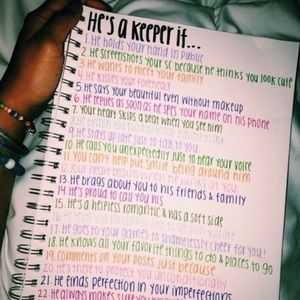 HE'S A KEEPER IF...
1. HE HOLDS YOUR HAND IN PUBLIC
2. HE SCREENSHOTS YOUR SC BECAUSE HE THINKS YOU LOOK CUTE
3. HE WANTS TO MEET YOUR FAMILY
4. HE KISSES YOUR FOREHEAD
5. HE SAYS YOUR BEAUTIFUL EVEN WITHOUT MAKEUP
6. HE REPLIES AS SOON AS HE SEES YOUR NAME ON HIS PHONE
7. YOUR HEART SKIPS A BEAT WHEN YOU SEE HIM
8. HE
9. HE STAYS UP LATE JUST TO TALK TO YOU.
10. HE CALLS YOU UNEXPECTEDLY JUST TO HEAR YOUR VOICE
11. YOU CAN'T HELP BUT SMILE BEING AROUND HIM
12. YOUR HEART BEAMS WHEN HE WINKS AT YOU
13. HE BRAGS ABOUT YOU TO HIS FRIENDS & FAMILY
14. HE'S PROUD TO CALL YOU HIS
15. HE'S A HELPLESS ROMANTIC & HAS A SOFT SIDE
16. HE
17. HE GOES TO YOUR GAMES TO SHAMELESSLY CHEER FOR YOU!
18. HE KNOWS ALL YOUR FAVORITE THINGS TO DO & PLACES TO GO
19. COMMENTS ON YOUR POSTS JUST BECAUSE
20. HE'S THERE TO PROTECT YOU UNCONDITIONALLY
21. HE FINDS PERFECTION IN YOUR IMPERFECTIONS
22. HE ALWAYS MAKES SURE YOU